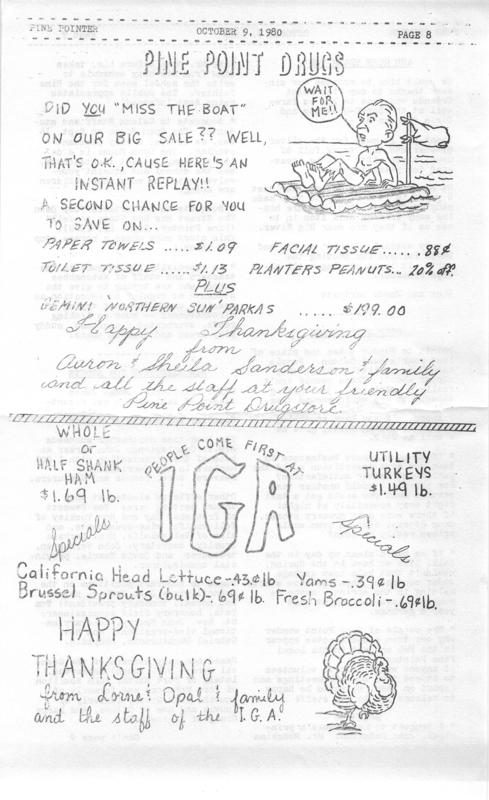 PINE POINTER OCTOBER 9, 1980 PAGE 8
PINE POINT DRUGS
WAIT
FOR
ME!!
DID YOU "MISS THE BOAT"
ON OUR BIG SALE?? WELL,
THAT'S O.K., CAUSE HERE'S AN
INSTANT REPLAY!!
A SECOND CHANCE FOR YOU
TO SAVE ON...
PAPER TOWELS ..... $1.09 FACIAL TISSUE...... .88¢
TOILET TISSUE ......$1.13 PLANTERS PEANUTS... 20% off.
PLUS
GEMINI 'NORTHERN SUN' PARKAS ..... $199.00
Happy Thanksgiving
from
Auron & Sheila Sanderson & family
and all the staff at your friendly
Pine Point Drugstore.
WHOLE
or
HALF SHANK
HAM
$1.69 lb.
Specials
PEOPLE COME FIRST AT
IGA
UTILITY
TURKEYS
$1.49 lb.
Specials
California Head Lettuce-.43¢lb. Yams-.39¢ lb
Brussel Sprouts (bulk)-.69¢ lb. Fresh Broccoli-.69¢lb.
HAPPY
THANKSGIVING
from Lorne & Opal & family
and the staff of the I.G.A.